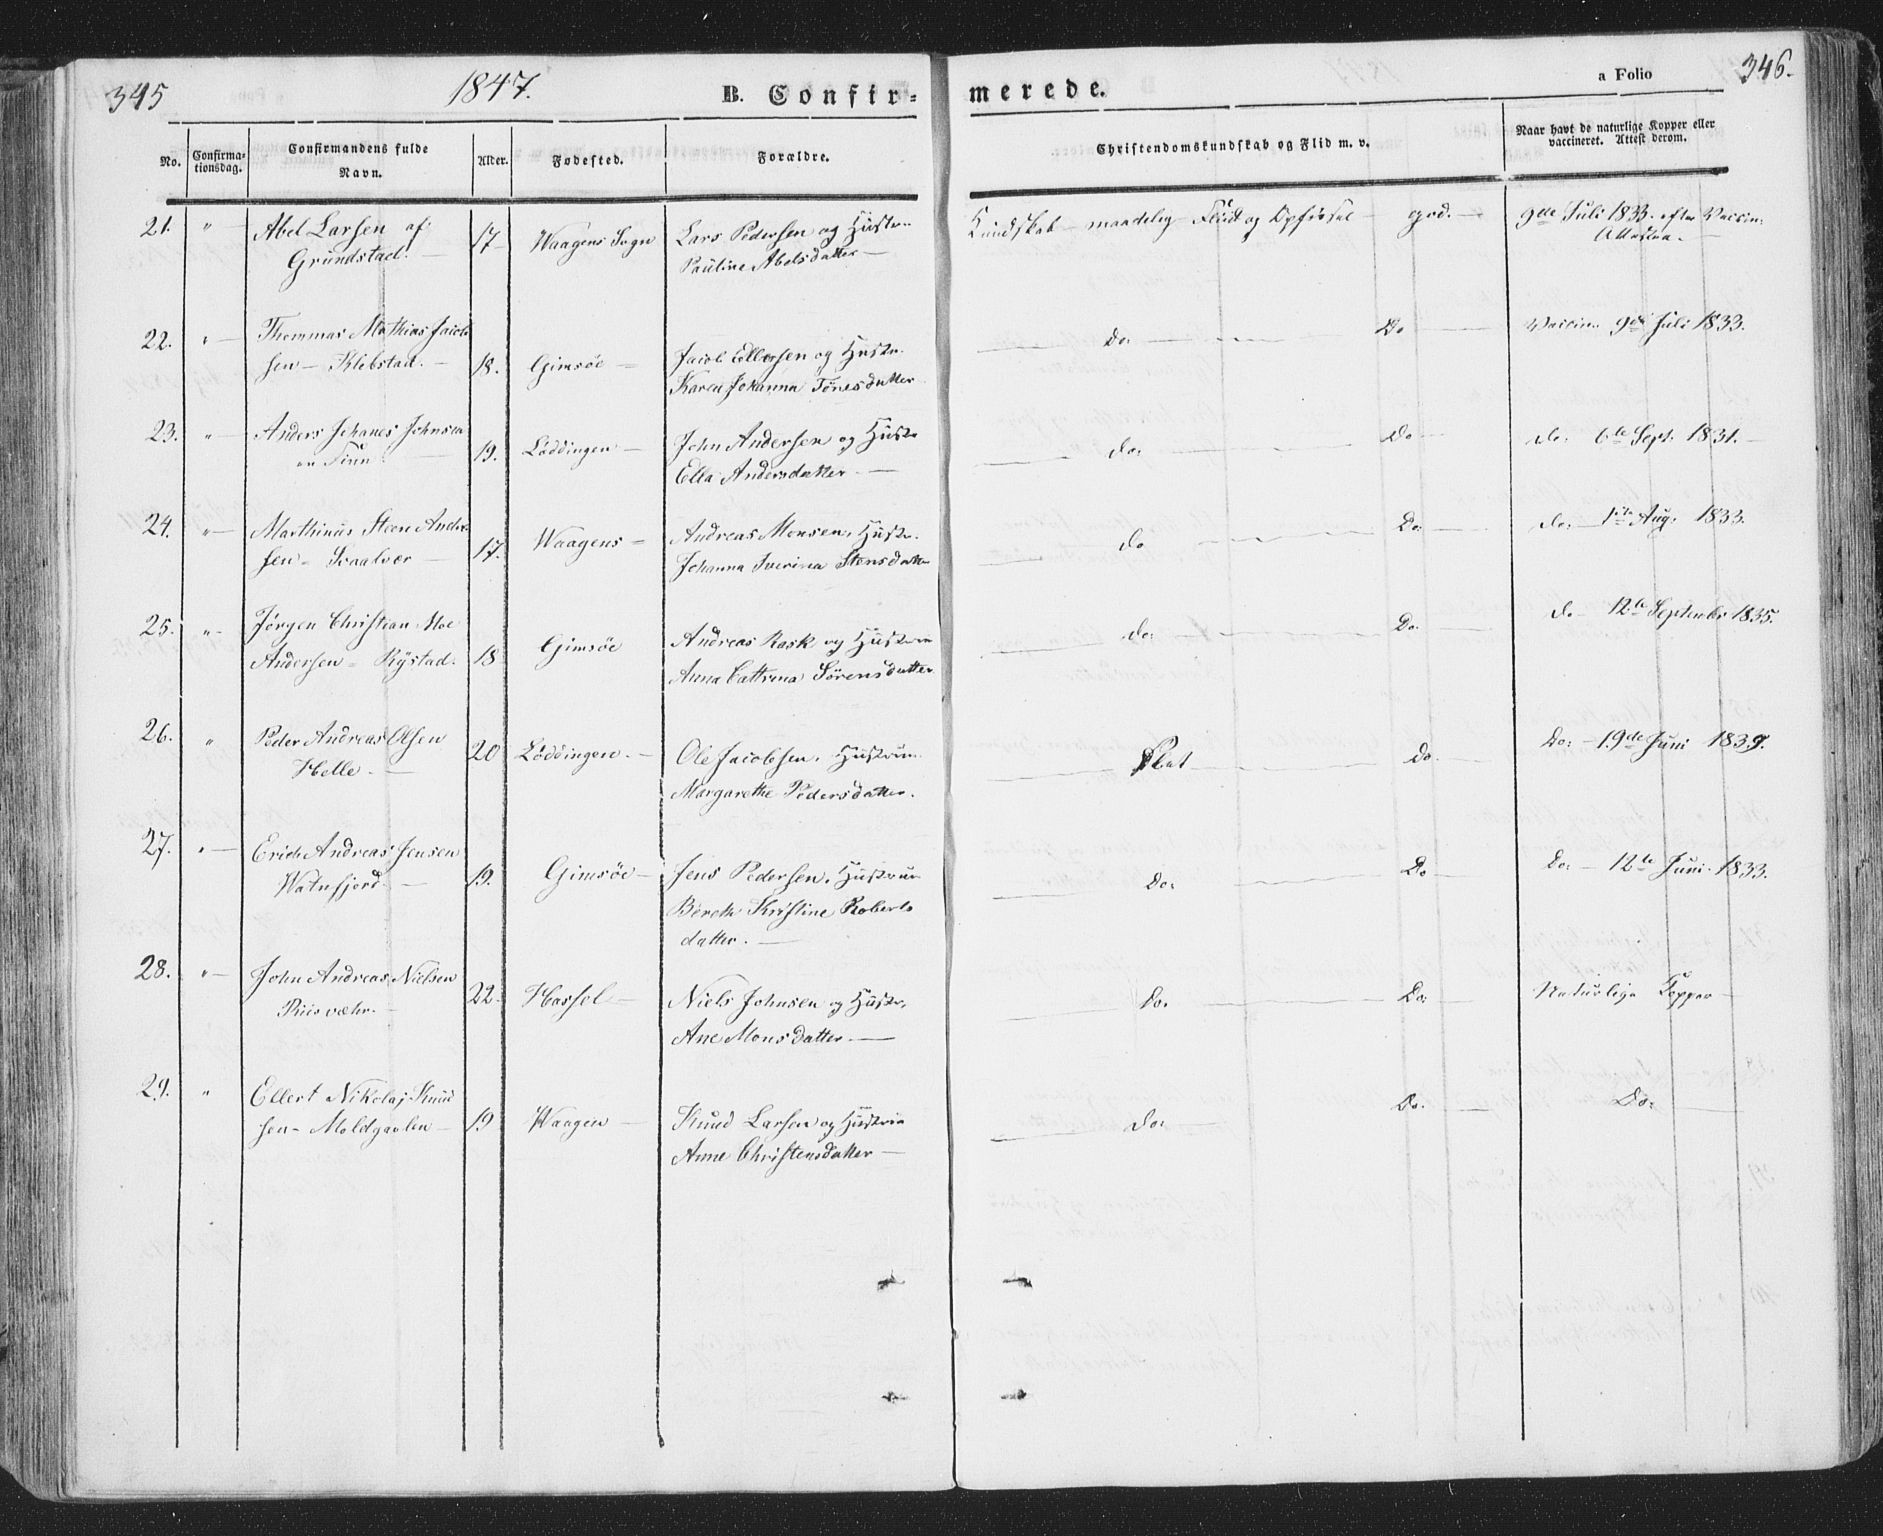 345
1847.
B. Confir-
merede.
a Folio
346.
No.
Confirma-
tionsdag.
Confirmandens fulde
Navn.
Alder.
Fødested.
Forældre.
Christendomskundskab og Flid m. v.
Naar havt de naturlige Kopper eller
vaccineret. Attest derom.
21. " Abel Larsen af 17 Waagens Sogn Lars Pedersen og Hustr. Kundskab maadelig Fliid og Opførsel god. 9de Juli 1833 efter Vaccin.
Grundstad. Pauline Abelsdatter Attesten.
22. " Thommas Mathias Jacob
sen Klebstad. 18. Gimsöe Jacob Ellersen og Hustr. Do. Do Vaccin. 9de Juli 1833.
Karen Johanna Tönesdatter
23. " Anders Johanes Johnsen 19. Löddingen John Andersen og Hustr Do. Do do. 6te Sept. 1831.
Ella Andersdatter
24. " Marthinus Steen Ander
sen = Svaalvær 17. Waagens = Andreas Monsen, Hustr. do Do. do. Aug. 1833.
Johanna Sverina Stensdatter
25. " Jörgen Christian Moe
Andersen = Rystad. 18 Gimsöe Andreas Rask og Hustrue do. Do. do 12te September 1835.
Anna Cathrina Sörensdatter
26. " Peder Andreas Olsen
Helle. 20 Löddingen. Ole Jacobsen, Hustrue Slet do. Do. 19de Juni 1839.
Margarethe Pedersdatter.
27. " Erich Andreas Jensen
Watnfjord. 19. Gimsöe Jens Pedersen, Hustrue Do. Do Do. 12te Juni 1833.
Bereth Kristine Roberts
datter.
28. " John Andreas Nielsen
Riisvæhr. 22. Hassel Niels Johnsen og Hustr. Do. Do. Naturlige Kopper
Ane Monsdatter
29. " Ellert Nikolaj Knud
sen Moldgavlen 19 Waagen Knud Larsen og Hustrue do. Do. Do.
Anne Christensdatter